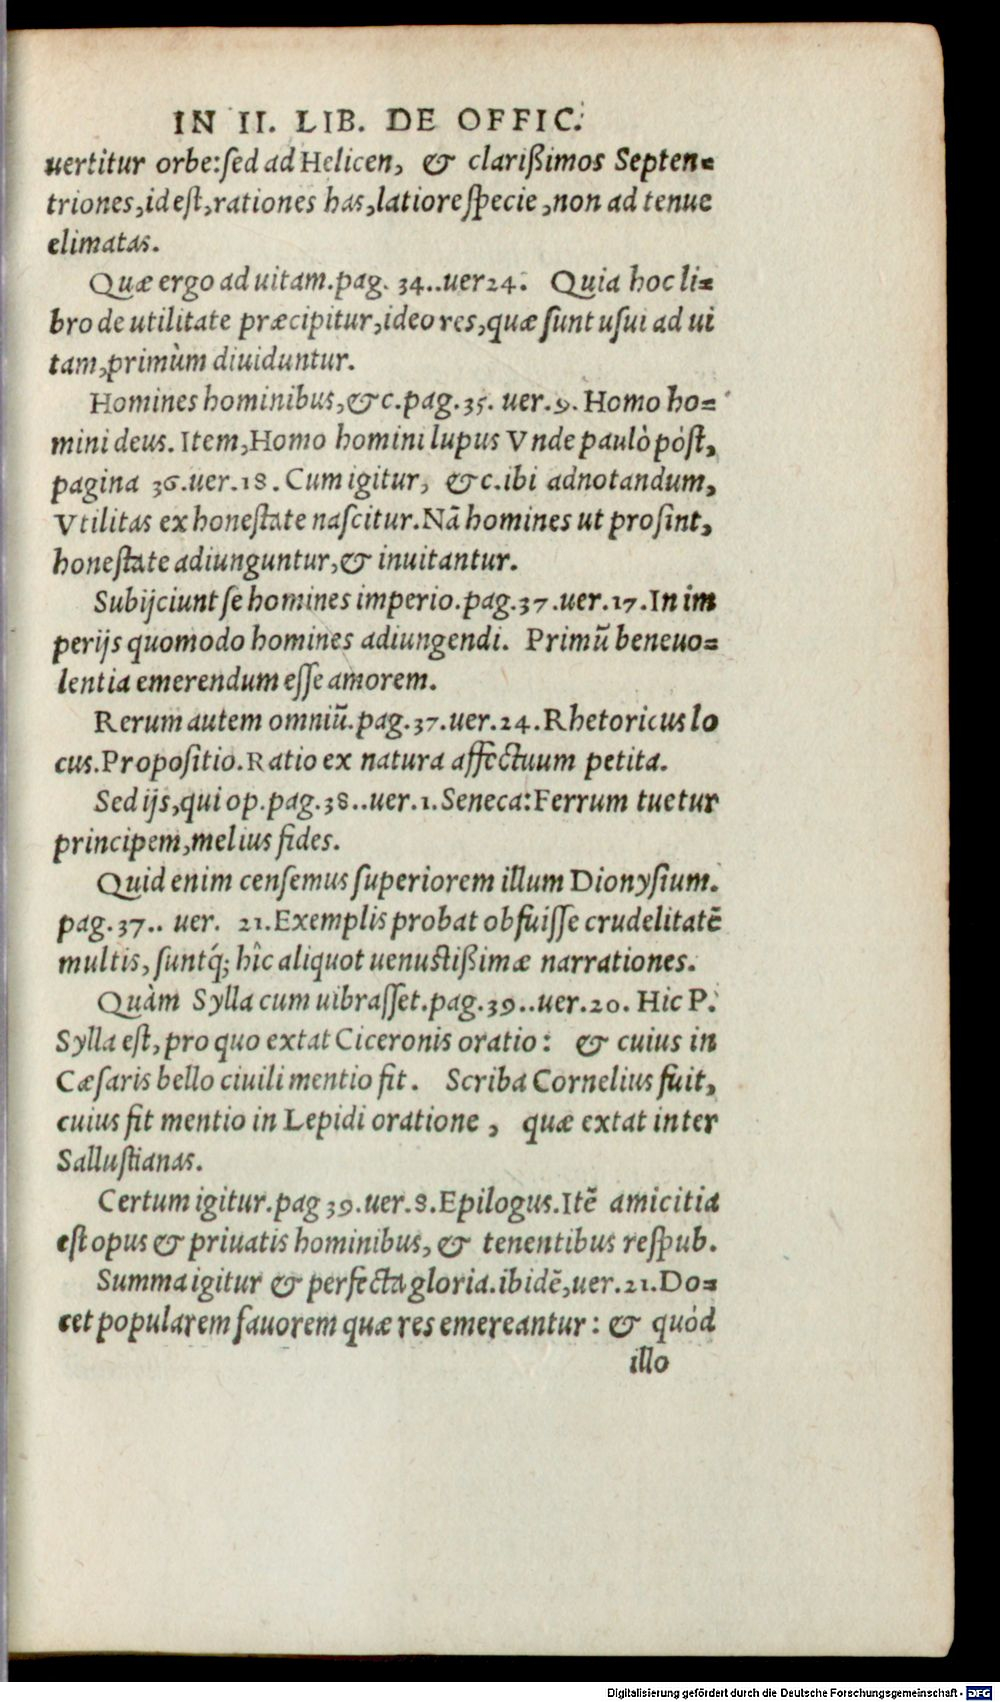 IN II. LIB. DE OFFIC.
uertitur orbe: sed ad Helicen, & clarißimos Septen=
triones, id est, rationes has, latiore specie, non ad tenue
elimatas.
Quæ ergo ad uitam. pag. 34.. uer 24. Quia hoc li=
bro de utilitate præcipitur, ideo res, quæ sunt usui ad ui
tam, primùm diuiduntur.
Homines hominibus, &c. pag. 35. uer. 9. Homo ho=
mini deus. Item, Homo homini lupus Vnde paulò pòst,
pagina 36. uer. 18. Cum igitur, &c. ibi adnotandum,
Vtilitas ex honestate nascitur. Nā homines ut prosint,
honestate adiunguntur, & inuitantur.
Subijciunt se homines imperio. pag. 37. uer. 17. In im
perijs quomodo homines adiungendi. Primū beneuo=
lentia emerendum esse amorem.
Rerum autem omniū. pag. 37. uer. 24. Rhetoricus lo
cus. Propositio. Ratio ex natura affectuum petita.
Sed ijs, qui op. pag. 38.. uer. 1. Seneca: Ferrum tuetur
principem, melius fides.
Quid enim censemus superiorem illum Dionysium.
pag. 37.. uer. 21. Exemplis probat obfuisse crudelitatē
multis, suntq́; hîc aliquot uenustißimæ narrationes.
Quàm Sylla cum uibrasset. pag. 39.. uer. 20. Hic P.
Sylla est, pro quo extat Ciceronis oratio: & cuius in
Cæsaris bello ciuili mentio fit. Scriba Cornelius fuit,
cuius fit mentio in Lepidi oratione, quæ extat inter
Sallustianas.
Certum igitur. pag 39. uer. 8. Epilogus. Itē amicitia
est opus & priuatis hominibus, & tenentibus respub.
Summa igitur & perfecta gloria. ibidē, uer. 21. Do=
cet popularem fauorem quæ res emereantur: & quòd
illo
Digitalisierung gefördert durch die Deutsche Forschungsgemeinschaft - DFG